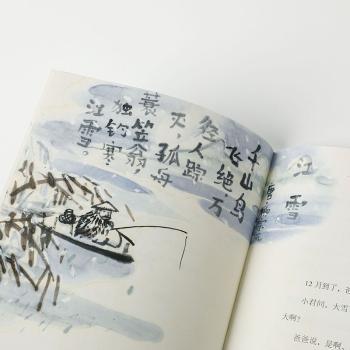 江雪
千山鸟
飞绝，万
径人踪
灭，孤舟
蓑笠翁，
独钓寒
江雪。
12月到了，
小君问，大雪
大啊？
爸爸说，是啊，